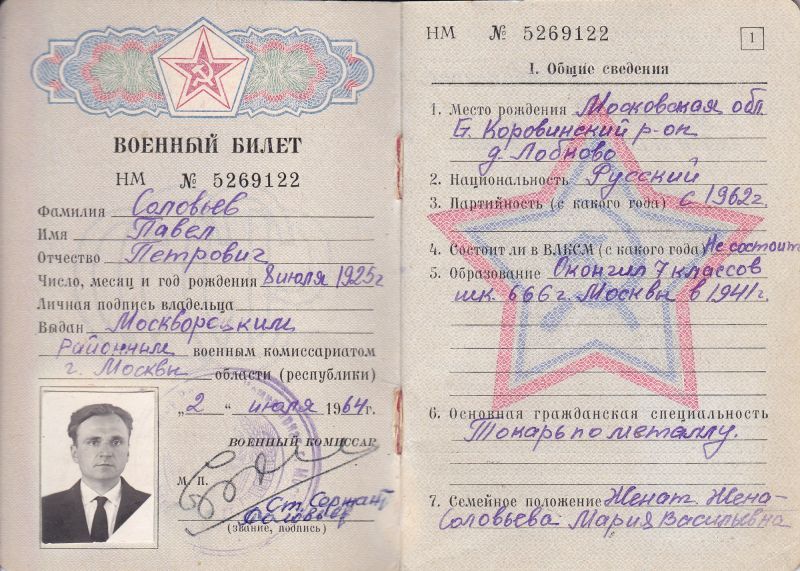 ВОЕННЫЙ БИЛЕТ
НМ № 5269122
Фамилия Соловьев
Имя Павел
Отчество Петрович
Число, месяц и год рождения 8 июля 1925г
Личная подпись владельца
Выдан Москворецким
Районным военным комиссариатом
г. Москвы области (республики)
„2“ июля 1964г.
ВОЕННЫЙ КОМИССАР
М. П.
Ст. Сержант
Соловьев
(звание, подпись)
НМ № 5269122
1
I. Общие сведения
1. Место рождения Московская обл
Б. Коровинский р-он
д. Лобково
2. Национальность Русский
3. Партийность (с какого года) с 1962г.
4. Состоит ли в ВЛКСМ (с какого года) Не состоит
5. Образование Окончил 7 классов
шк. 666 г. Москвы в 1941г.
6. Основная гражданская специальность
Токарь по металлу.
7. Семейное положение Женат. Жена-
Соловьева Мария Васильевна